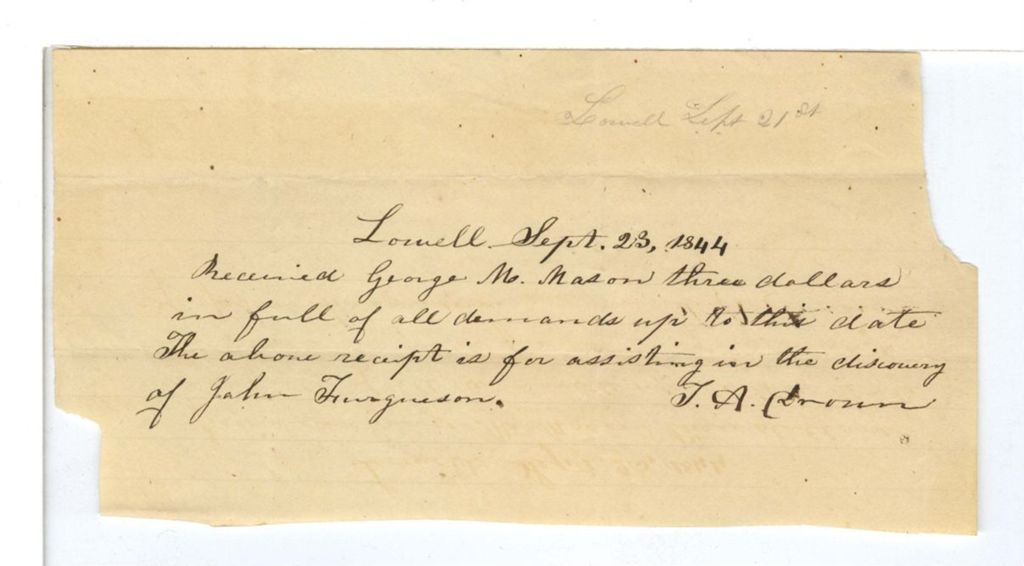 Lowell Sept 21st
Lowell Sept. 23, 1844
Received George M. Mason three dollars
in full of all demands up to this date
The above receipt is for assisting in the discovery
of John Furgueson. T. A. Crown